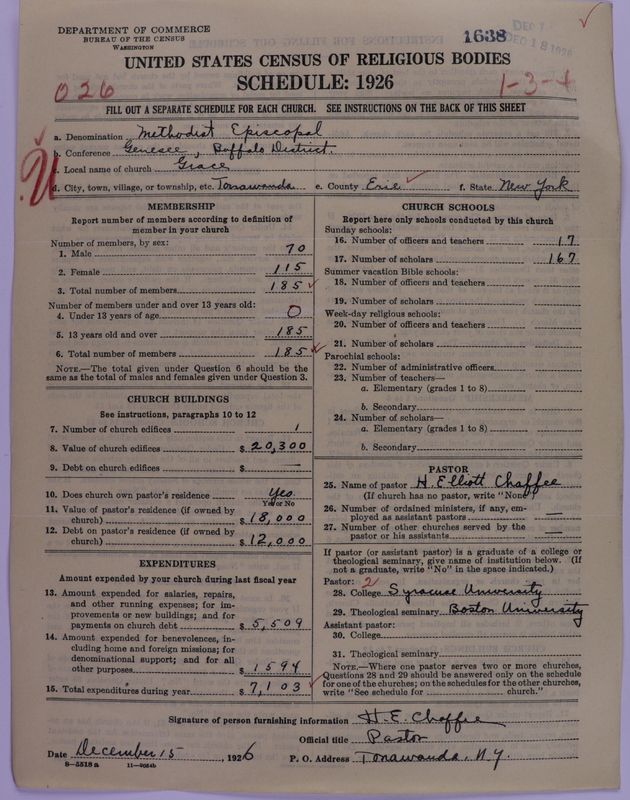 DEPARTMENT OF COMMERCE
BUREAU OF THE CENSUS
WASHINGTON
1638
DEC 18 1926
UNITED STATES CENSUS OF RELIGIOUS BODIES
SCHEDULE: 1926
026
1-3-4
FILL OUT A SEPARATE SCHEDULE FOR EACH CHURCH. SEE INSTRUCTIONS ON THE BACK OF THIS SHEET
a. Denomination Methodist Episcopal
b. Conference Genesee, Buffalo District.
c. Local name of church Grace
d. City, town, village, or township, etc. Tonawanda e. County Erie f. State New York
MEMBERSHIP
Report number of members according to definition of
member in your church
Number of members, by sex:
1. Male 70
2. Female 115
3. Total number of members 185
Number of members under and over 13 years old:
4. Under 13 years of age 0
5. 13 years old and over 185
6. Total number of members 185
NOTE.—The total given under Question 6 should be the
same as the total of males and females given under Question 3.
CHURCH BUILDINGS
See instructions, paragraphs 10 to 12
7. Number of church edifices 1
8. Value of church edifices $ 20,300
9. Debt on church edifices $ —
10. Does church own pastor's residence Yes
Yes or No
11. Value of pastor's residence (if owned by
church) $ 18,000
12. Debt on pastor's residence (if owned by
church) $ 12,000
EXPENDITURES
Amount expended by your church during last fiscal year
13. Amount expended for salaries, repairs,
and other running expenses; for im-
provements or new buildings; and for
payments on church debt $ 5,509
14. Amount expended for benevolences, in-
cluding home and foreign missions; for
denominational support; and for all
other purposes $ 1594
15. Total expenditures during year $ 7,103
CHURCH SCHOOLS
Report here only schools conducted by this church
Sunday schools:
16. Number of officers and teachers 17
17. Number of scholars 167
Summer vacation Bible schools:
18. Number of officers and teachers
19. Number of scholars
Week-day religious schools:
20. Number of officers and teachers
21. Number of scholars
Parochial schools:
22. Number of administrative officers
23. Number of teachers—
a. Elementary (grades 1 to 8)
b. Secondary
24. Number of scholars—
a. Elementary (grades 1 to 8)
b. Secondary
PASTOR
25. Name of pastor H Elliott Chaffee
(If church has no pastor, write "None")
26. Number of ordained ministers, if any, em-
ployed as assistant pastors —
27. Number of other churches served by the
pastor or his assistants —
If pastor (or assistant pastor) is a graduate of a college or
theological seminary, give name of institution below. (If
not a graduate, write "No" in the space indicated.)
Pastor: 2
28. College Syracuse University
29. Theological seminary Boston University
Assistant pastor:
30. College
31. Theological seminary
NOTE.—Where one pastor serves two or more churches,
Questions 28 and 29 should be answered only on the schedule
for one of the churches; on the schedules for the other churches,
write "See schedule for church."
Signature of person furnishing information H. E. Chaffee
Official title Pastor
Date December 15, 1926 P. O. Address Tonawanda, N.Y.
8—5518 a 11—9024b